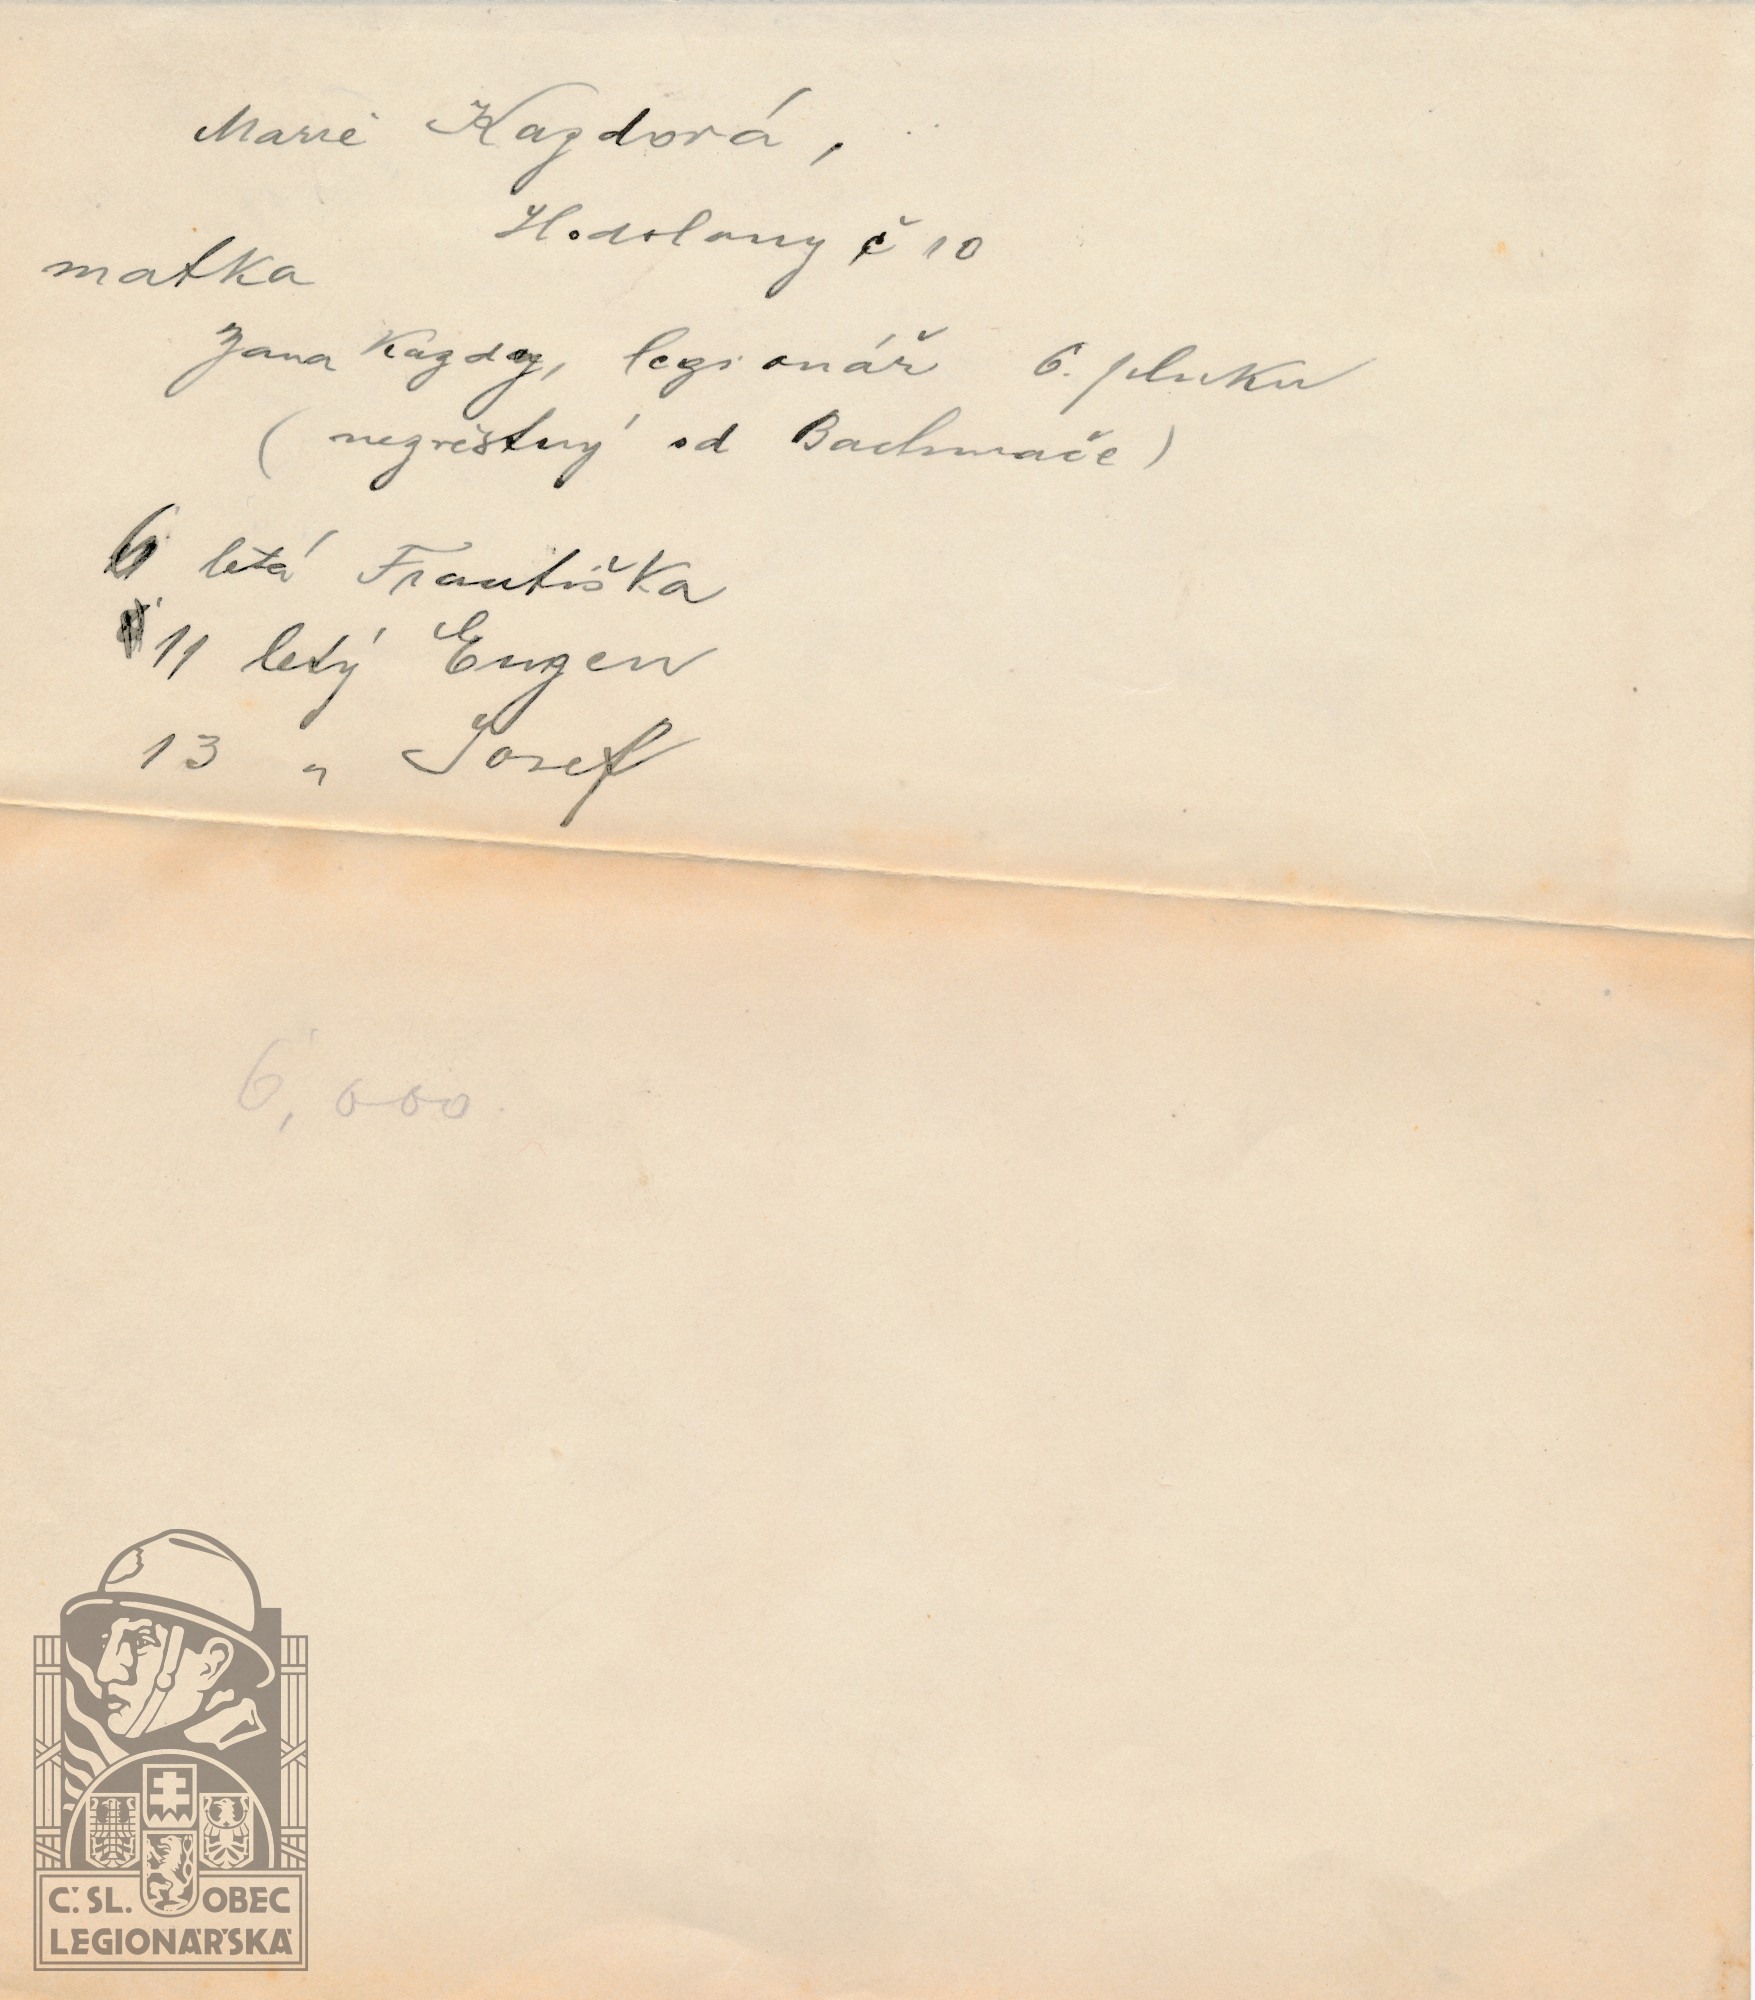 Marie Kazdová,
Hodolany č 10
matka
Jana Kazdy, legionář 6. pluku
(nezvěstný od Bachmače)
6 letá Františka
11 letý Eugen
13 " Josef
6,000
Č. SL. OBEC
LEGIONÁŘSKÁ